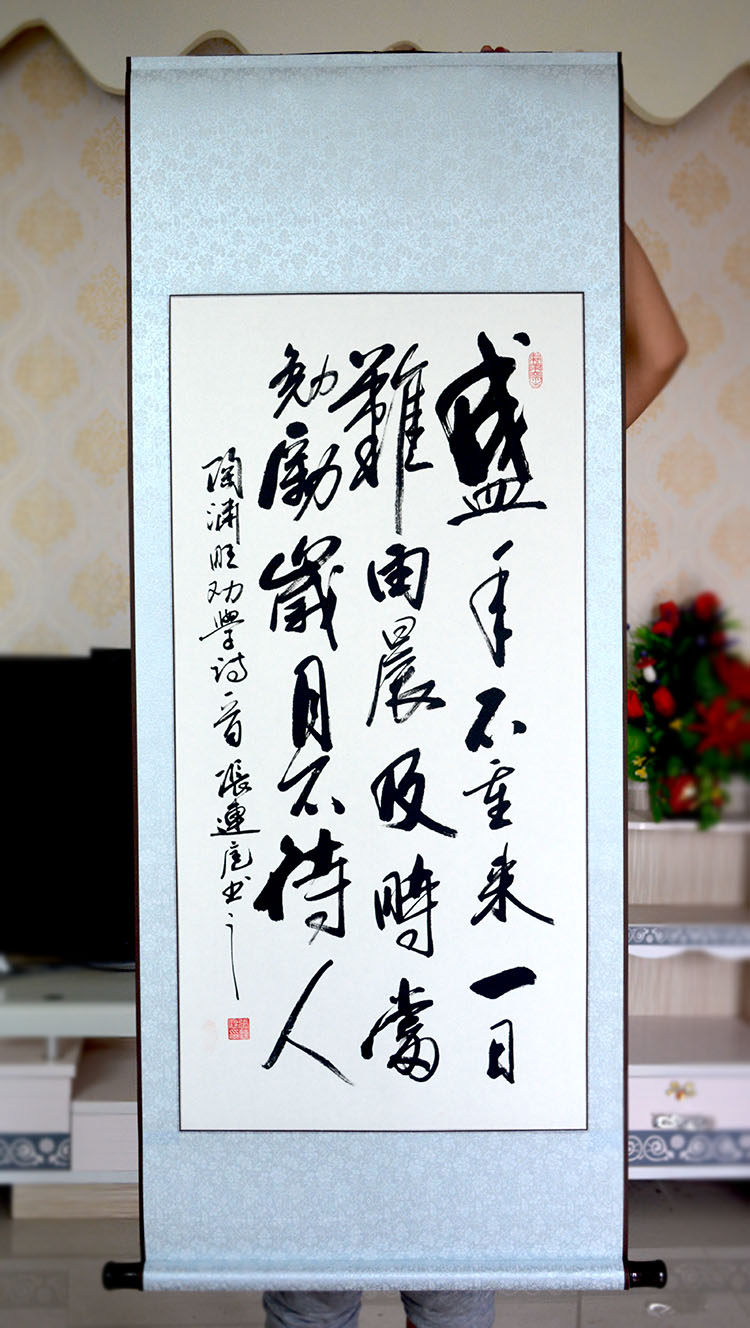 盛年不重来一日
難再晨及時當
勉勵歲月不待人
陶渊明劝學诗一首 張連庭书之